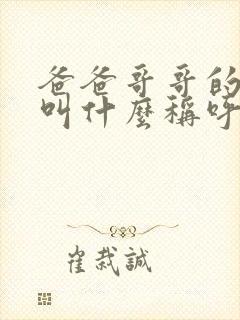 爸爸哥哥的
叫什麼稱呼
崔栽誠